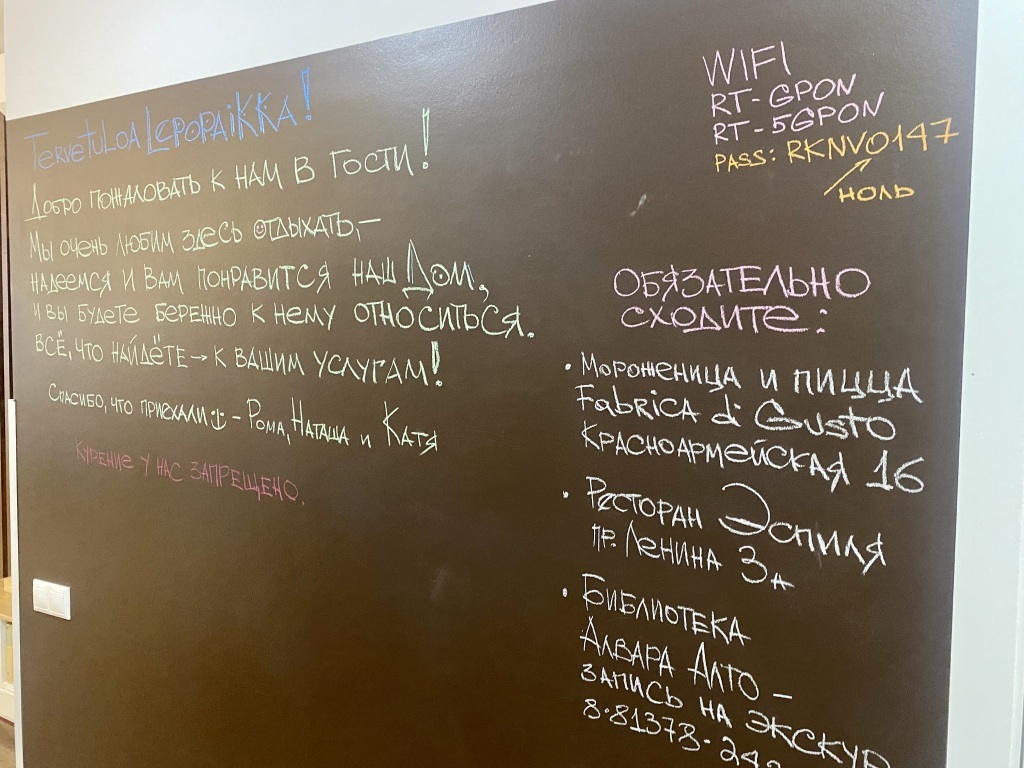 Tervetuloa Lepopaikka!
Добро пожаловать к нам в гости!
Мы очень любим здесь отдыхать,—
надеемся и Вам понравится наш Дом,
и вы будете бережно к нему относиться.
Всё, что найдёте → к вашим услугам!
Спасибо, что приехали - Рома, Наташа и Катя
Курение у нас запрещено.
WIFI
RT-GPON
RT-5GPON
PASS: RKNVO147
НОЛЬ
ОБЯЗАТЕЛЬНО
СХОДИТЕ:
• Мороженица и пицца
Fabrica di Gusto
Красноармейская 16
• Ресторан Эспиля
пр. Ленина 3а
• Библиотека
Алвара Алто –
запись на экскур
8·81378·24